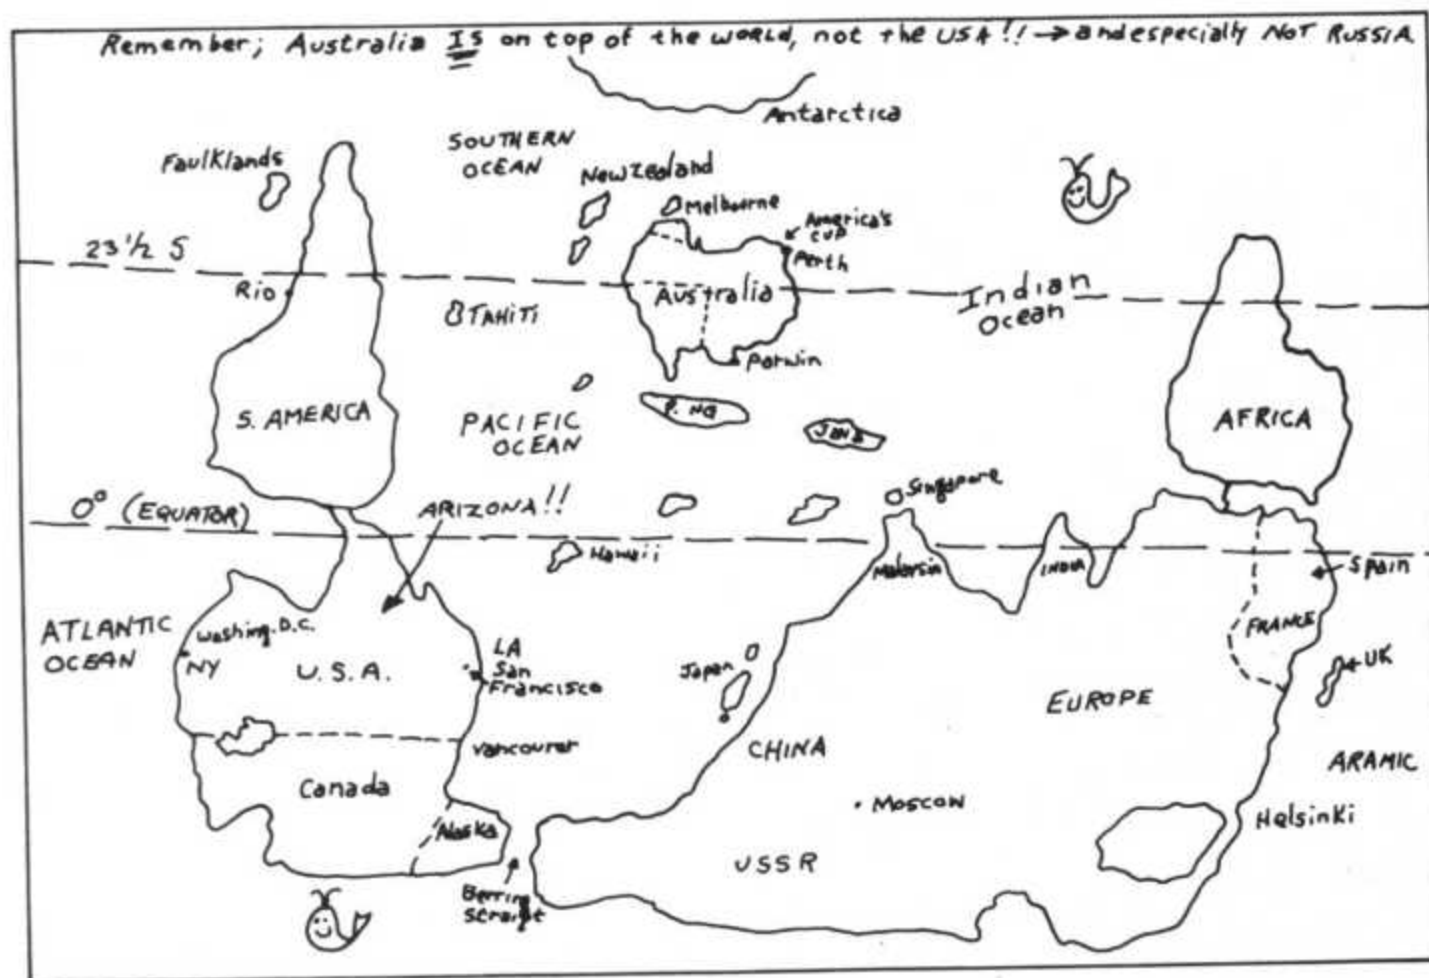 Remember; Australia IS on top of the WORLD, not the USA!! → and especially NOT RUSSIA
Antarctica
SOUTHERN
OCEAN
Faulklands
New Zealand
Melbourne
America's
cup
Perth
23 1/2 S
Rio
TAHITI
Australia
Indian
Ocean
Darwin
S. AMERICA
PACIFIC
OCEAN
P. NG
JAVA
AFRICA
0° (EQUATOR)
ARIZONA!!
Singapore
Hawaii
Malaysia
INDIA
Spain
ATLANTIC
OCEAN
Washing. D.C.
NY
U.S.A.
LA
San
Francisco
Japan
FRANCE
UK
EUROPE
Vancouver
CHINA
ARAMIC
Canada
Moscow
Helsinki
Alaska
USSR
Berring
Straight